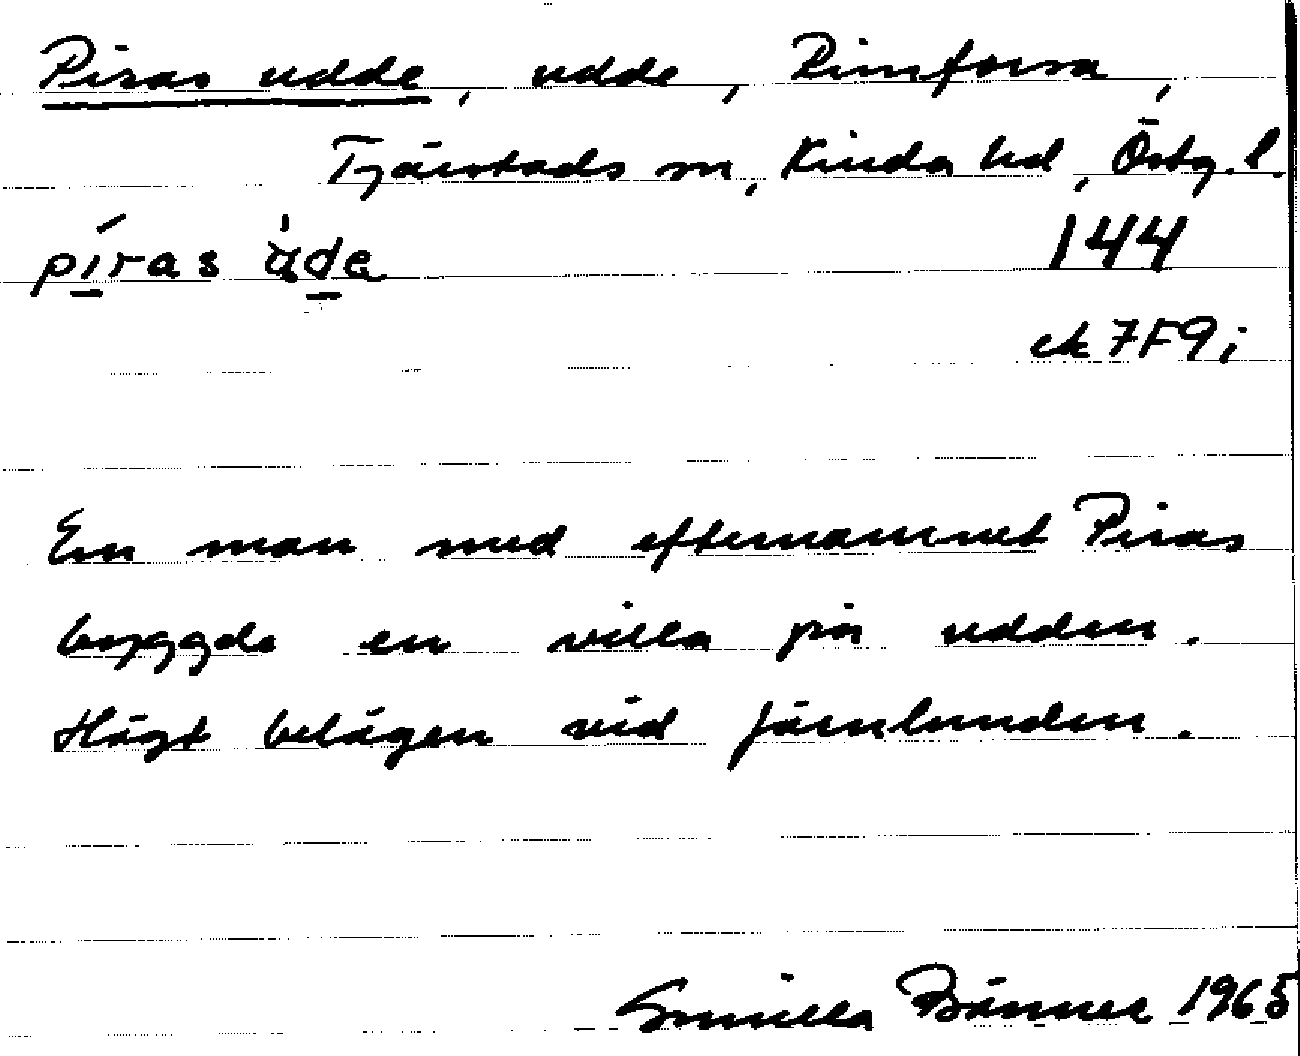 Piras udde, udde, Rimforsa,
Tjärstads sn, Kinda hd, Östg. l.
píras ùde 144
ek 7F9i
En man med efternamnet Piras
byggde en villa på udden.
Högt belägen vid Järnlunden.
Gunilla Bänner 1965